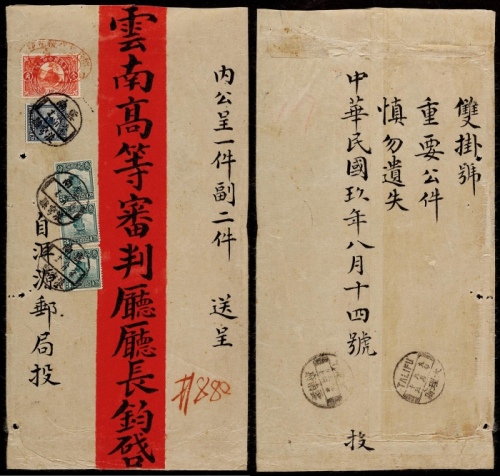 內公呈一件副二件　送呈
雲南高等審判廳廳長鈞啓
自洱源郵局投
#880
雙掛號
重要公件
慎勿遺失
中華民國玖年八月十四號　投
TALIFU